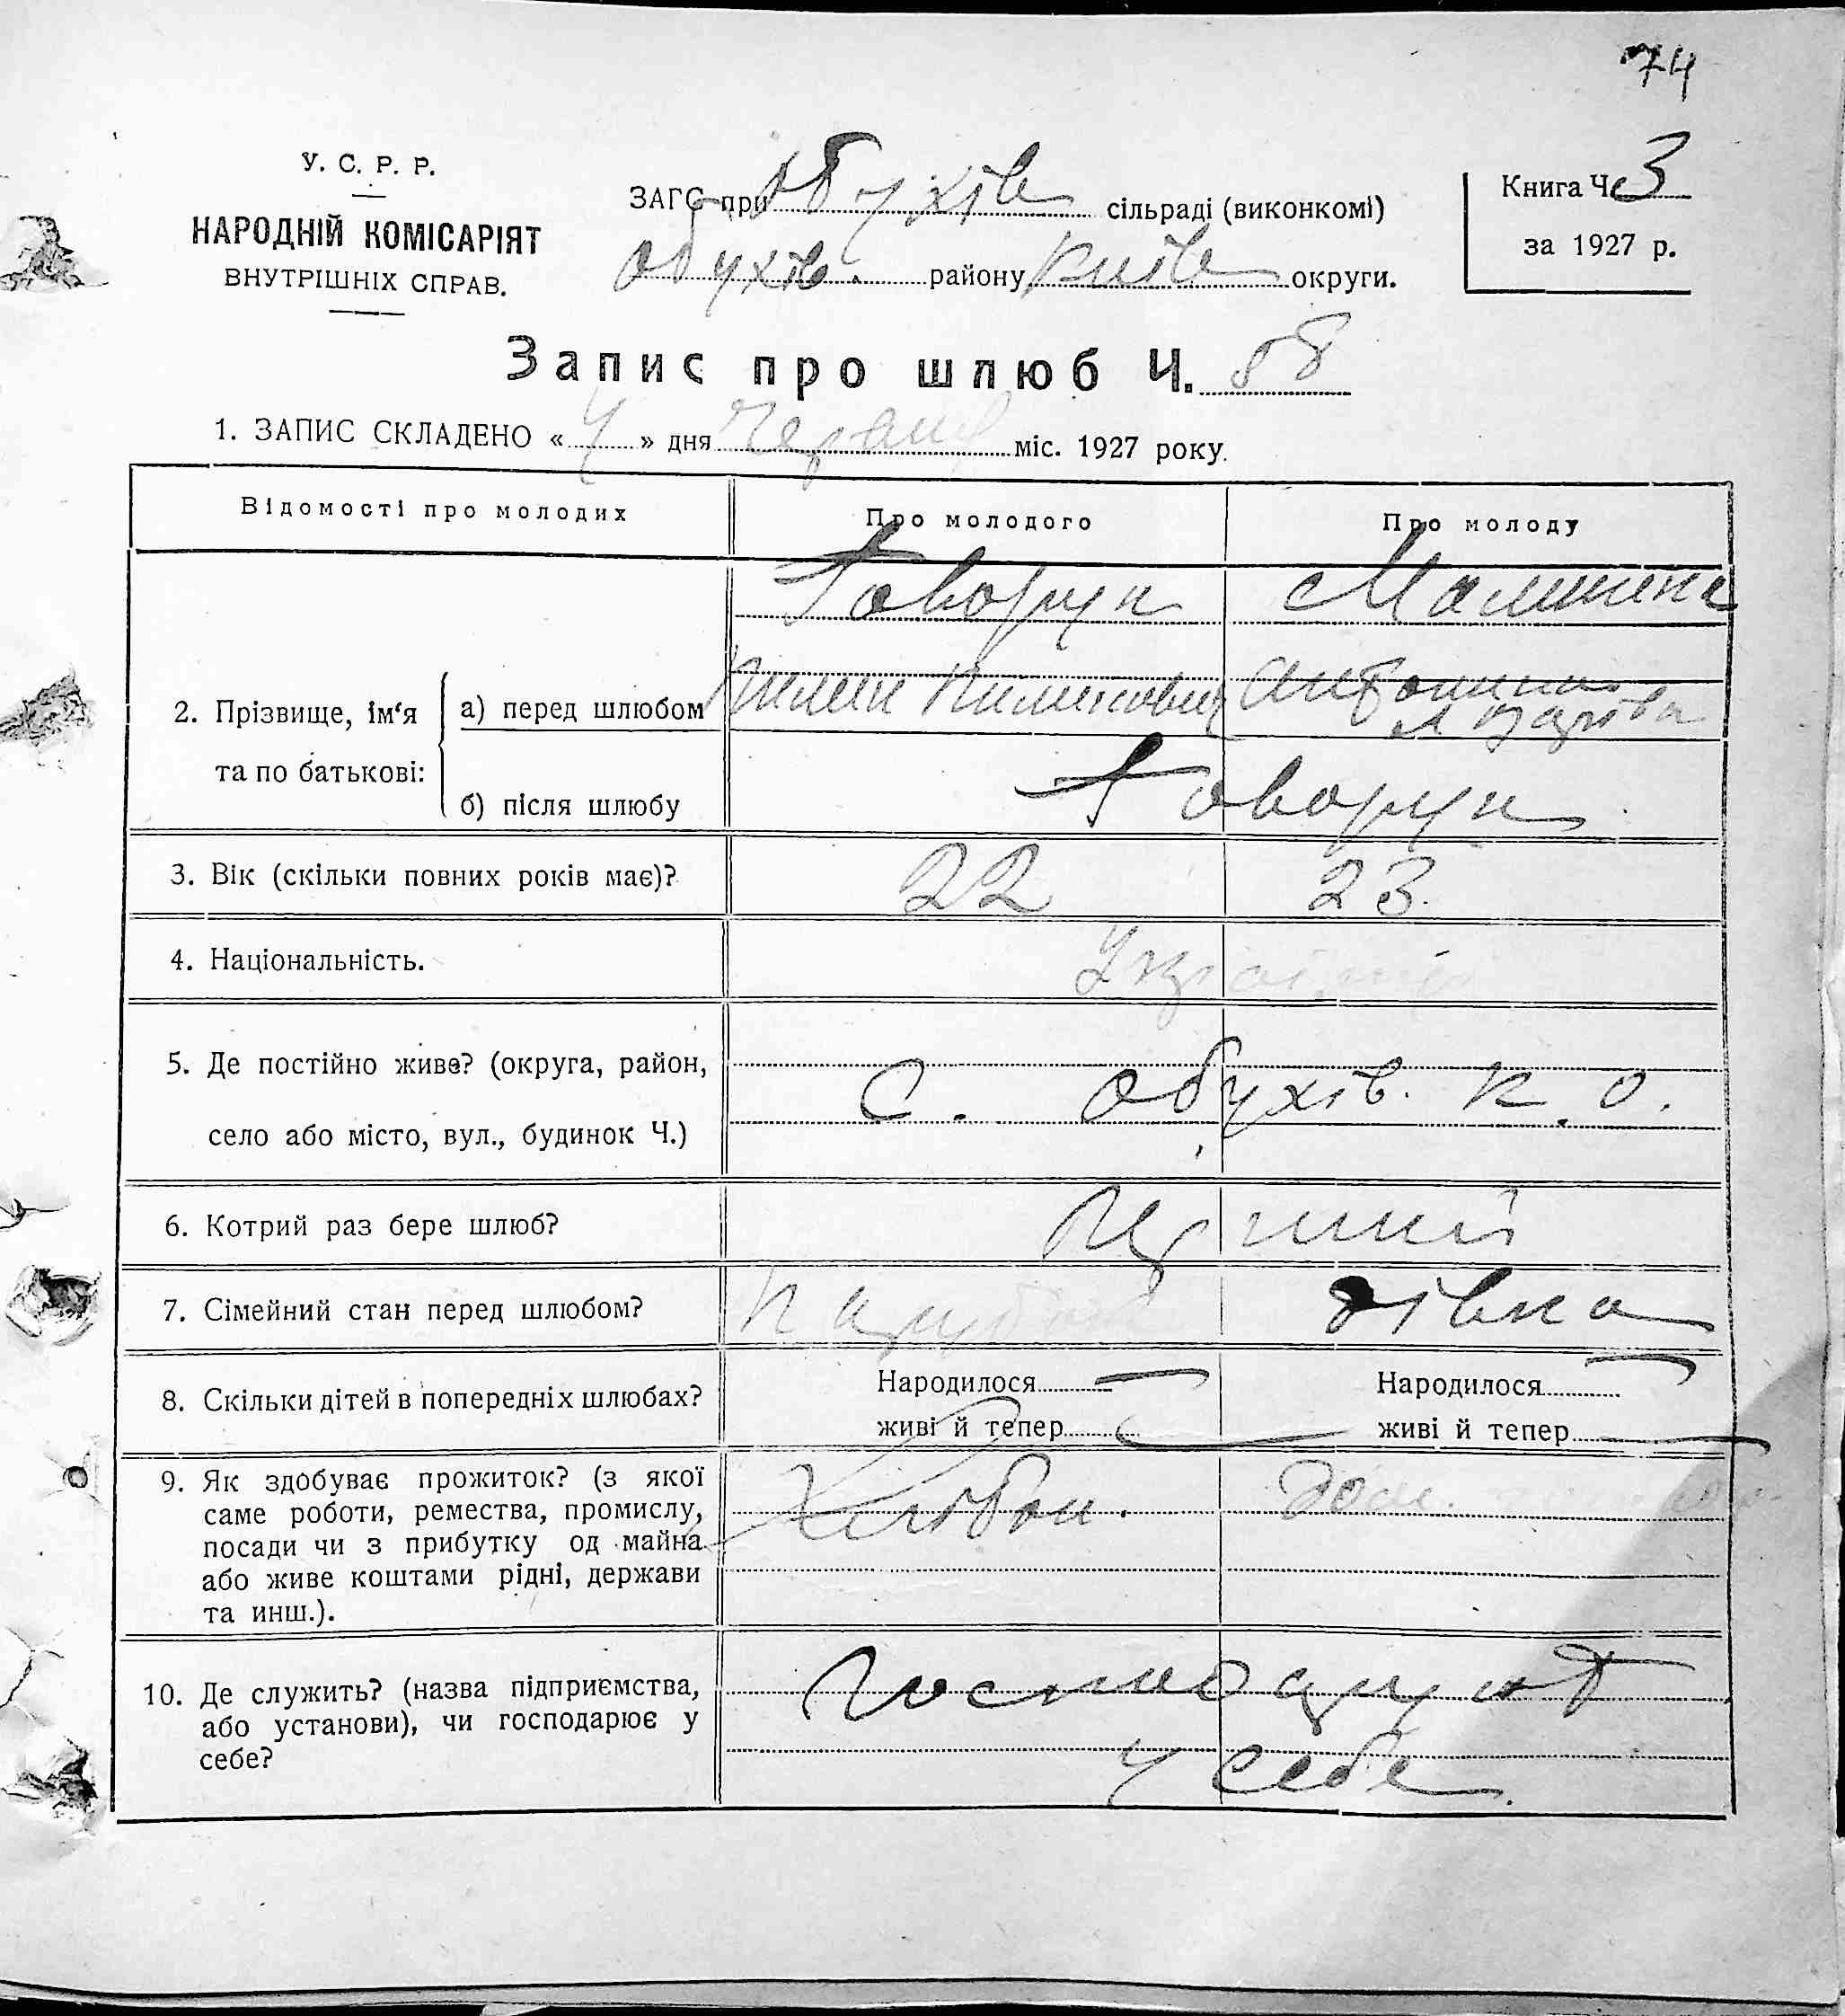 74
У. С. Р. Р.
НАРОДНІЙ КОМІСАРІЯТ
ВНУТРІШНІХ СПРАВ.
ЗАГС при Обухів сільраді (виконкомі)
Обухів. району Київ округи.
Книга Ч. 3
за 1927 р.
Запис про шлюб Ч. 58
1. ЗАПИС СКЛАДЕНО « 4 » дня Червня міс. 1927 року.
Відомості про молодих Про молодого Про молоду
2. Прізвище, ім‘я та по батькові:
а) перед шлюбом
Говорун
Пилип Пилипович
Антонина
Назарівна
б) після шлюбу Говорун
3. Вік (скільки повних років має)? 22 23.
4. Національність. Україн
5. Де постійно живе? (округа, район,
село або місто, вул., будинок Ч.)
С. Обухів. К. О.
6. Котрий раз бере шлюб? Перший
7. Сімейний стан перед шлюбом? парубок дівка
8. Скільки дітей в попередніх шлюбах? Народилося — Народилося —
живі й тепер — живі й тепер —
9. Як здобуває прожиток? (з якої
саме роботи, ремества, промислу,
посади чи з прибутку од майна
або живе коштами рідні, держави
та инш.).
Хлібон. Дом.
10. Де служить? (назва підприємства,
або установи), чи господарює у
себе?
Господарюют
у себе.